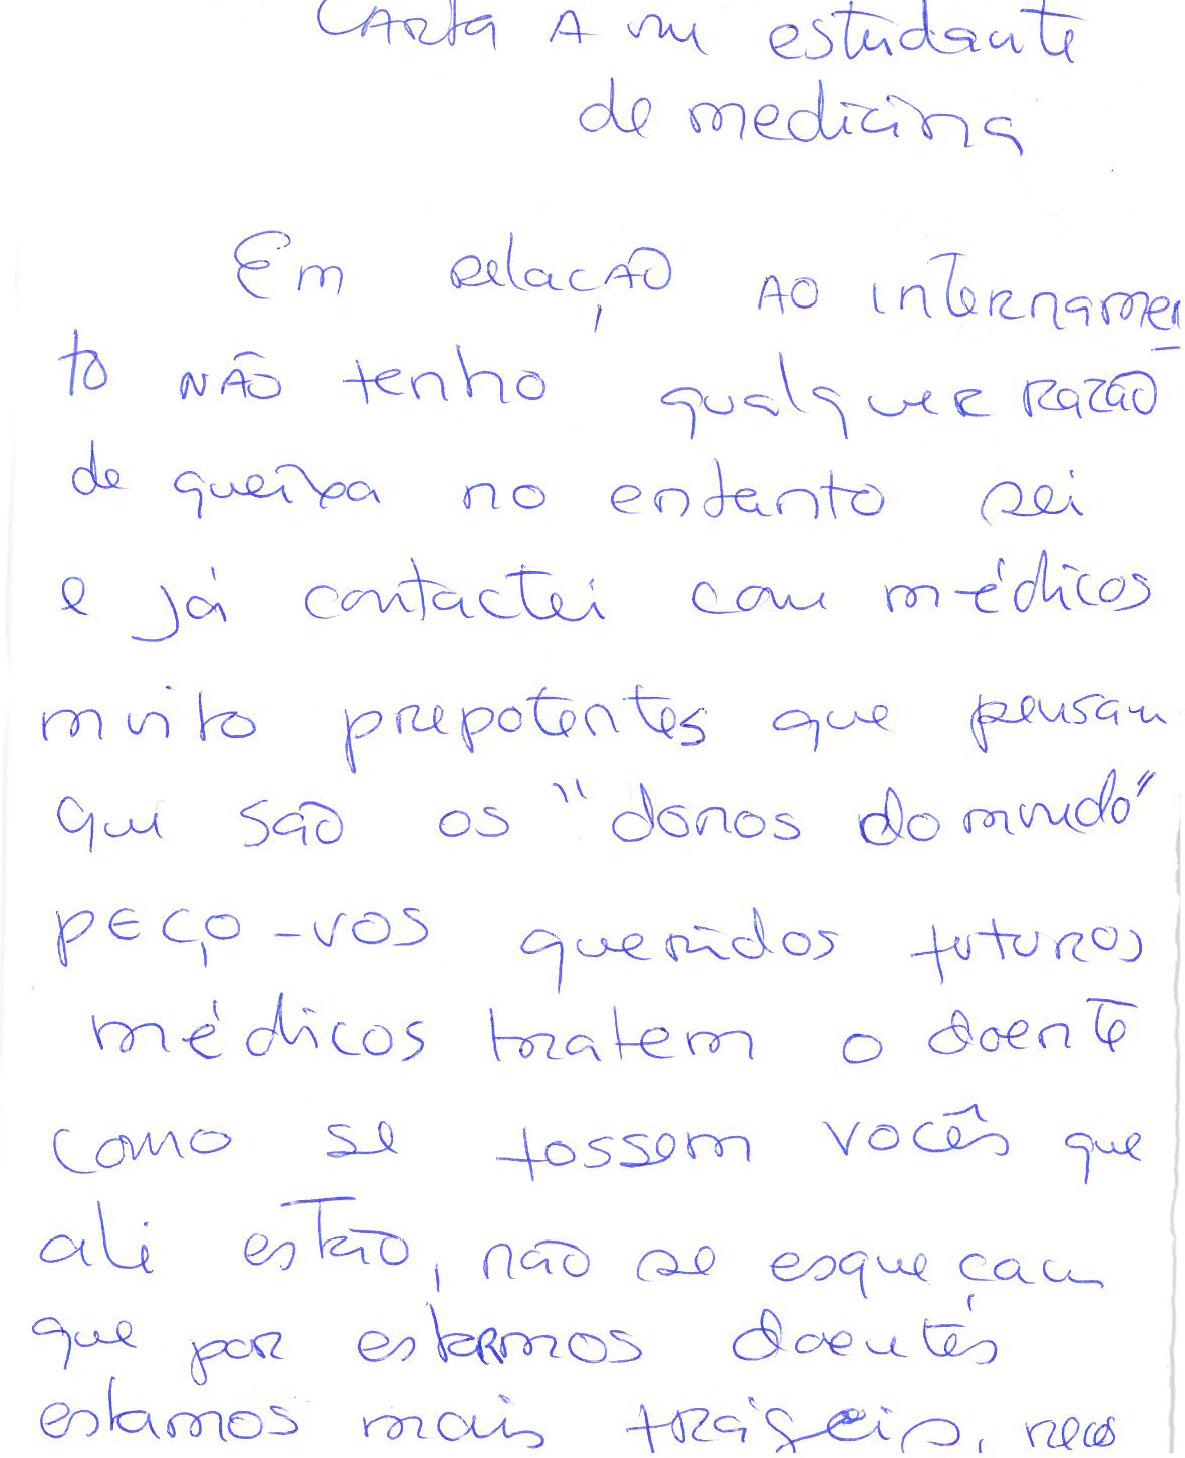 Carta a um estudante
de medicina
Em relação ao internamen
to não tenho qualquer razão
de queixa no entanto sei
e já contactei com médicos
muito prepotentes que pensam
que são os "donos do mundo"
peço-vos queridos futuros
médicos tratem o doente
como se fossem vocês que
ali estão, não se esqueçam
que por estarmos doentes
estamos mais frágeis, neces